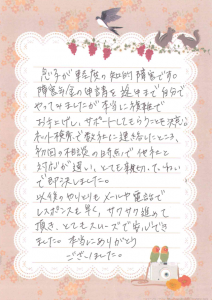 息子が軽度の知的障害です。
障害年金の申請を途中まで自分で
やってみましたが本当に複雑で
お手上げし、サポートしてもらうことを決意。
ネット検索で数社に連絡したところ、
初回の相談の時点で他社と
対応が違い、とても親切、ていねい
で即決しました。
以後のやりとりもメールや電話で
レスポンスも早く、サクサク進めて
頂き、とてもスムーズで安心でき
ました。本当にありがとう
ございました。